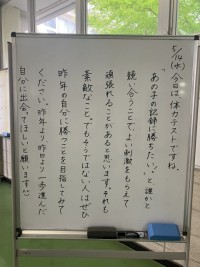 5/14(水) 今日は、体力テストですね。
「あの子の記録に勝ちたい!」と誰かと
競い合うことで、よい刺激をもらえて
頑張れることがあると思います。それも
素敵なこと。でもそうではない人はぜひ
昨年の自分に勝つことを目指してみて
ください。昨年より、昨日より一歩進んだ
自分に出会ってほしいと願います!!